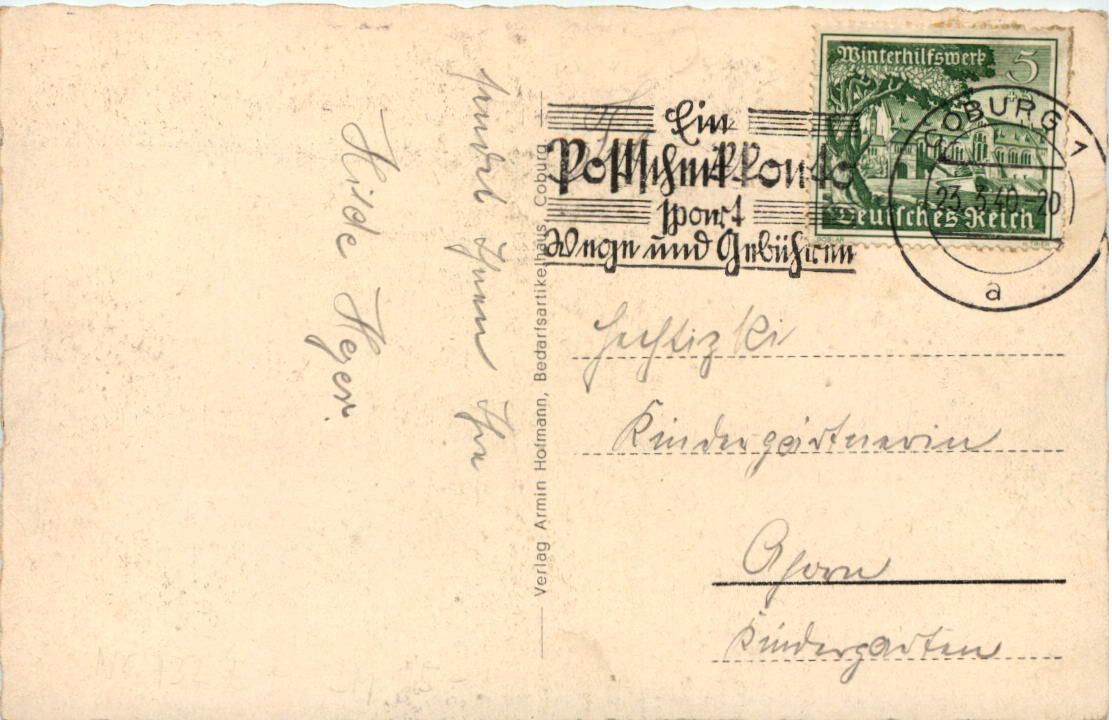 sendet Ihnen Ihre
Hilde Heger.
Verlag Armin Hofmann, Bedarfsartikelhaus, Coburg
Winterhilfswerk 5
Deutsches Reich
COBURG 1
23.3.40. 20
a
Ein
Postscheckkonto
spart
Wege und Gebühren
Kindergärtnerin
Ahorn
Kindergarten